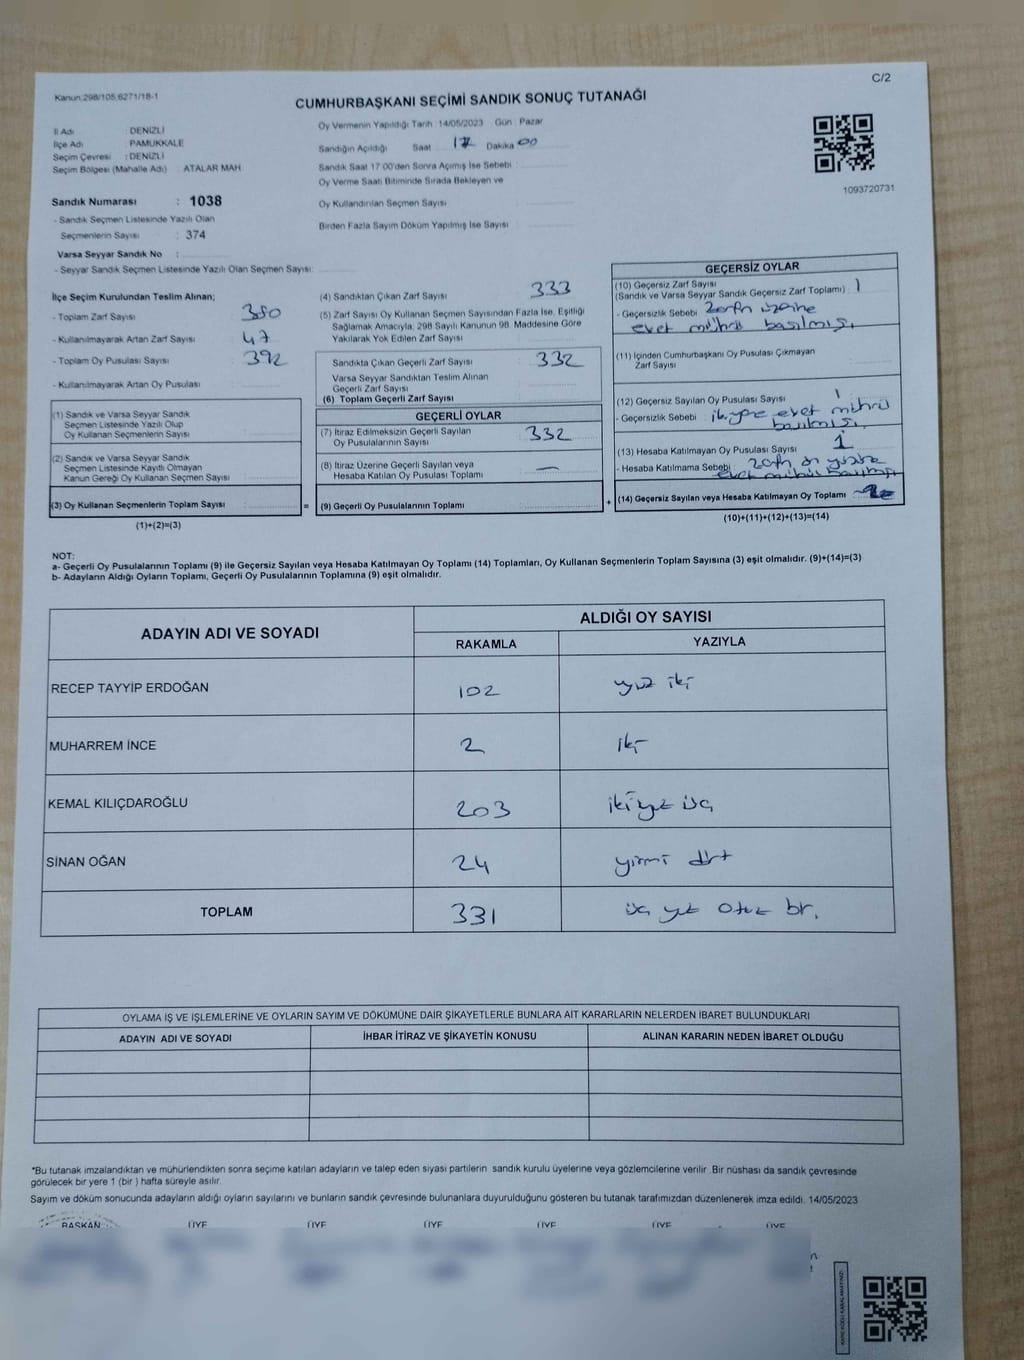 C/2
Kanun:298/105,6271/18-1
CUMHURBAŞKANI SEÇİMİ SANDIK SONUÇ TUTANAĞI
İl Adı : DENİZLİ
İlçe Adı : PAMUKKALE
Seçim Çevresi : DENİZLİ
Seçim Bölgesi (Mahalle Adı) : ATALAR MAH
Oy Vermenin Yapıldığı Tarih :14/05/2023 Gün : Pazar
Sandığın Açıldığı Saat 17 Dakika 00
Sandık Saat 17:00'den Sonra Açımış İse Sebebi :
Oy Verme Saati Bitiminde Sırada Bekleyen ve
Oy Kullandırılan Seçmen Sayısı
Birden Fazla Sayım Döküm Yapılmış İse Sayısı :
1093720731
Sandık Numarası : 1038
- Sandık Seçmen Listesinde Yazılı Olan
Seçmenlerin Sayısı : 374
Varsa Seyyar Sandık No :
- Seyyar Sandık Seçmen Listesinde Yazılı Olan Seçmen Sayısı:
İlçe Seçim Kurulundan Teslim Alınan;
- Toplam Zarf Sayısı 380
- Kullanılmayarak Artan Zarf Sayısı 47
- Toplam Oy Pusulası Sayısı 392
- Kullanılmayarak Artan Oy Pusulası
(1) Sandık ve Varsa Seyyar Sandık
Seçmen Listesinde Yazılı Olup
Oy Kullanan Seçmenlerin Sayısı
(2) Sandık ve Varsa Seyyar Sandık
Seçmen Listesinde Kayıtlı Olmayan
Kanun Gereği Oy Kullanan Seçmen Sayısı
(3) Oy Kullanan Seçmenlerin Toplam Sayısı
(1)+(2)=(3)
=
(4) Sandıktan Çıkan Zarf Sayısı 333
(5) Zarf Sayısı Oy Kullanan Seçmen Sayısından Fazla İse, Eşitliği
Sağlamak Amacıyla, 298 Sayılı Kanunun 98. Maddesine Göre
Yakılarak Yok Edilen Zarf Sayısı
Sandıkta Çıkan Geçerli Zarf Sayısı 332
Varsa Seyyar Sandıktan Teslim Alınan
Geçerli Zarf Sayısı
(6) Toplam Geçerli Zarf Sayısı
GEÇERLİ OYLAR
(7) İtiraz Edilmeksizin Geçerli Sayılan
Oy Pusulalarının Sayısı 332
(8) İtiraz Üzerine Geçerli Sayılan veya
Hesaba Katılan Oy Pusulası Toplamı —
(9) Geçerli Oy Pusulalarının Toplamı
+
GEÇERSİZ OYLAR
(10) Geçersiz Zarf Sayısı
(Sandık ve Varsa Seyyar Sandık Geçersiz Zarf Toplamı) : 1
- Geçersizlik Sebebi zarfın üzerine
evet mührü basılmış.
(11) İçinden Cumhurbaşkanı Oy Pusulası Çıkmayan
Zarf Sayısı
(12) Geçersiz Sayılan Oy Pusulası Sayısı 1
- Geçersizlik Sebebi iki yere evet mührü
basılmış.
(13) Hesaba Katılmayan Oy Pusulası Sayısı 1
- Hesaba Katılmama Sebebi zarfın
evet mührü
(14) Geçersiz Sayılan veya Hesaba Katılmayan Oy Toplamı
(10)+(11)+(12)+(13)=(14)
NOT:
a- Geçerli Oy Pusulalarının Toplamı (9) ile Geçersiz Sayılan veya Hesaba Katılmayan Oy Toplamı (14) Toplamları, Oy Kullanan Seçmenlerin Toplam Sayısına (3) eşit olmalıdır. (9)+(14)=(3)
b- Adayların Aldığı Oyların Toplamı, Geçerli Oy Pusulalarının Toplamına (9) eşit olmalıdır.
ADAYIN ADI VE SOYADI
ALDIĞI OY SAYISI
RAKAMLA YAZIYLA
RECEP TAYYİP ERDOĞAN 102 yüz iki
MUHARREM İNCE 2 iki
KEMAL KILIÇDAROĞLU 203 ikiyüz üç
SİNAN OĞAN 24 yirmi dört
TOPLAM 331 üç yüz otuz bir.
OYLAMA İŞ VE İŞLEMLERİNE VE OYLARIN SAYIM VE DÖKÜMÜNE DAİR ŞİKAYETLERLE BUNLARA AİT KARARLARIN NELERDEN İBARET BULUNDUKLARI
ADAYIN ADI VE SOYADI İHBAR İTİRAZ VE ŞİKAYETİN KONUSU ALINAN KARARIN NEDEN İBARET OLDUĞU
*Bu tutanak imzalandıktan ve mühürlendikten sonra seçime katılan adayların ve talep eden siyasi partilerin sandık kurulu üyelerine veya gözlemcilerine verilir .Bir nüshası da sandık çevresinde
görülecek bir yere 1 (bir ) hafta süreyle asılır.
Sayım ve döküm sonucunda adayların aldığı oyların sayılarını ve bunların sandık çevresinde bulunanlara duyurulduğunu gösteren bu tutanak tarafımızdan düzenlenerek imza edildi. 14/05/2023
BAŞKAN ÜYE ÜYE ÜYE ÜYE ÜYE ÜYE